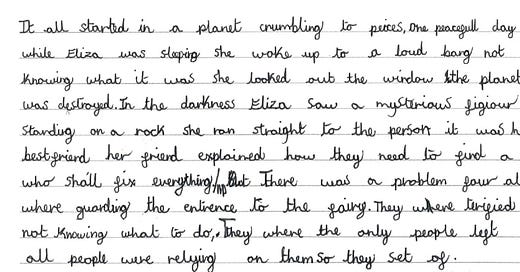 It all started in a planet crumbling to peices, One peacegull day
while Eliza was sleeping she woke up to a loud bang not
Knowing what it was she looked out the window the planet
was destroyed. In the darkness Eliza saw a mysterious figiour
Standing on a rock she ran straight to the person it was h
bestfriend her friend explained how they need to find a
who shall fix everything, But There was a problem four al
where guarding the entrence to the fairy. They where terified
not knowing what to do,. They where the only people left
all people were relying on them So they set of.